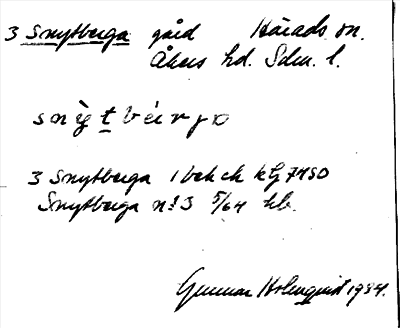 3 Snytberga gård Härads sn.
Åkers hd. Sdm. l.
snỳtbérja
3 Snytberga 1 bek ek kfj 7450
Snytberga nº3 5/64 hb.
Gunnar Holmqvist 1984.